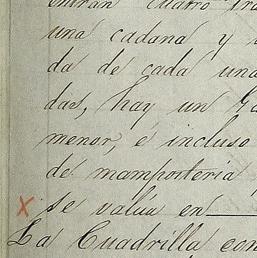 cuatro
una cadana y
da de cada una
das, hay un
menor, e incluso
de mamposteria
se valúa en
La Cuadrilla con